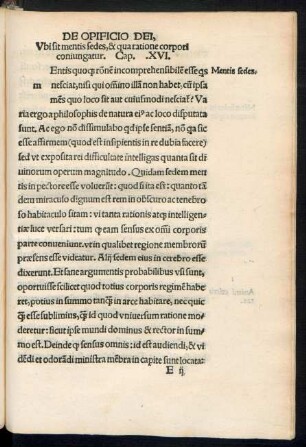 DE OPIFICIO DEI,
Vbi sit mentis sedes, & qua ratione corpori
coniungatur. Cap. XVI.
Entis quoqꝫ rōnē incomprehensibilē esse qs Mentis sedes.
m nesciat, nisi qui oīno illā non habet: cū ipsa
mēs quo loco sit aut cuiusmodi nesciat? Va
ria ergo a philosophis de natura ei⁹ ac loco disputata
sunt. Ac ego nō dissimulabo qd ipse sentiā, nō qa sic
esse affirmem (quod est insipientis in re dubia facere)
sed vt exposita rei difficultate intelligas quanta sit di
uinorum operum magnitudo. Quidam sedem men
tis in pectore esse voluerūt: quod si ita est: quanto tā
dem miraculo dignum est rem in obscuro ac tenebro
so habitaculo sitam: vi tanta rationis atqꝫ intelligen
tiæ luce versari: tum qꝫ eam sensus ex omī corporis
parte conueniunt. vt in qualibet regione membrorū
præsens esse videatur. Alij sedem eius in cerebro esse
dixerunt. Et sane argumentis probabilibus vsi sunt,
oportuisse scilicet quod totius corporis regimē habe
ret, potius in summo tanqꝫ in arce habitare, nec quic
qꝫ esse sublimius, qꝫ id quod vniuersum ratione mo
deretur: sicut ipse mundi dominus & rector in sum
mo est. Deinde qꝫ sensus omnis: id est audiendi, & vi
dēdi et odorādi ministra mēbra in capite sunt locata:
E ij